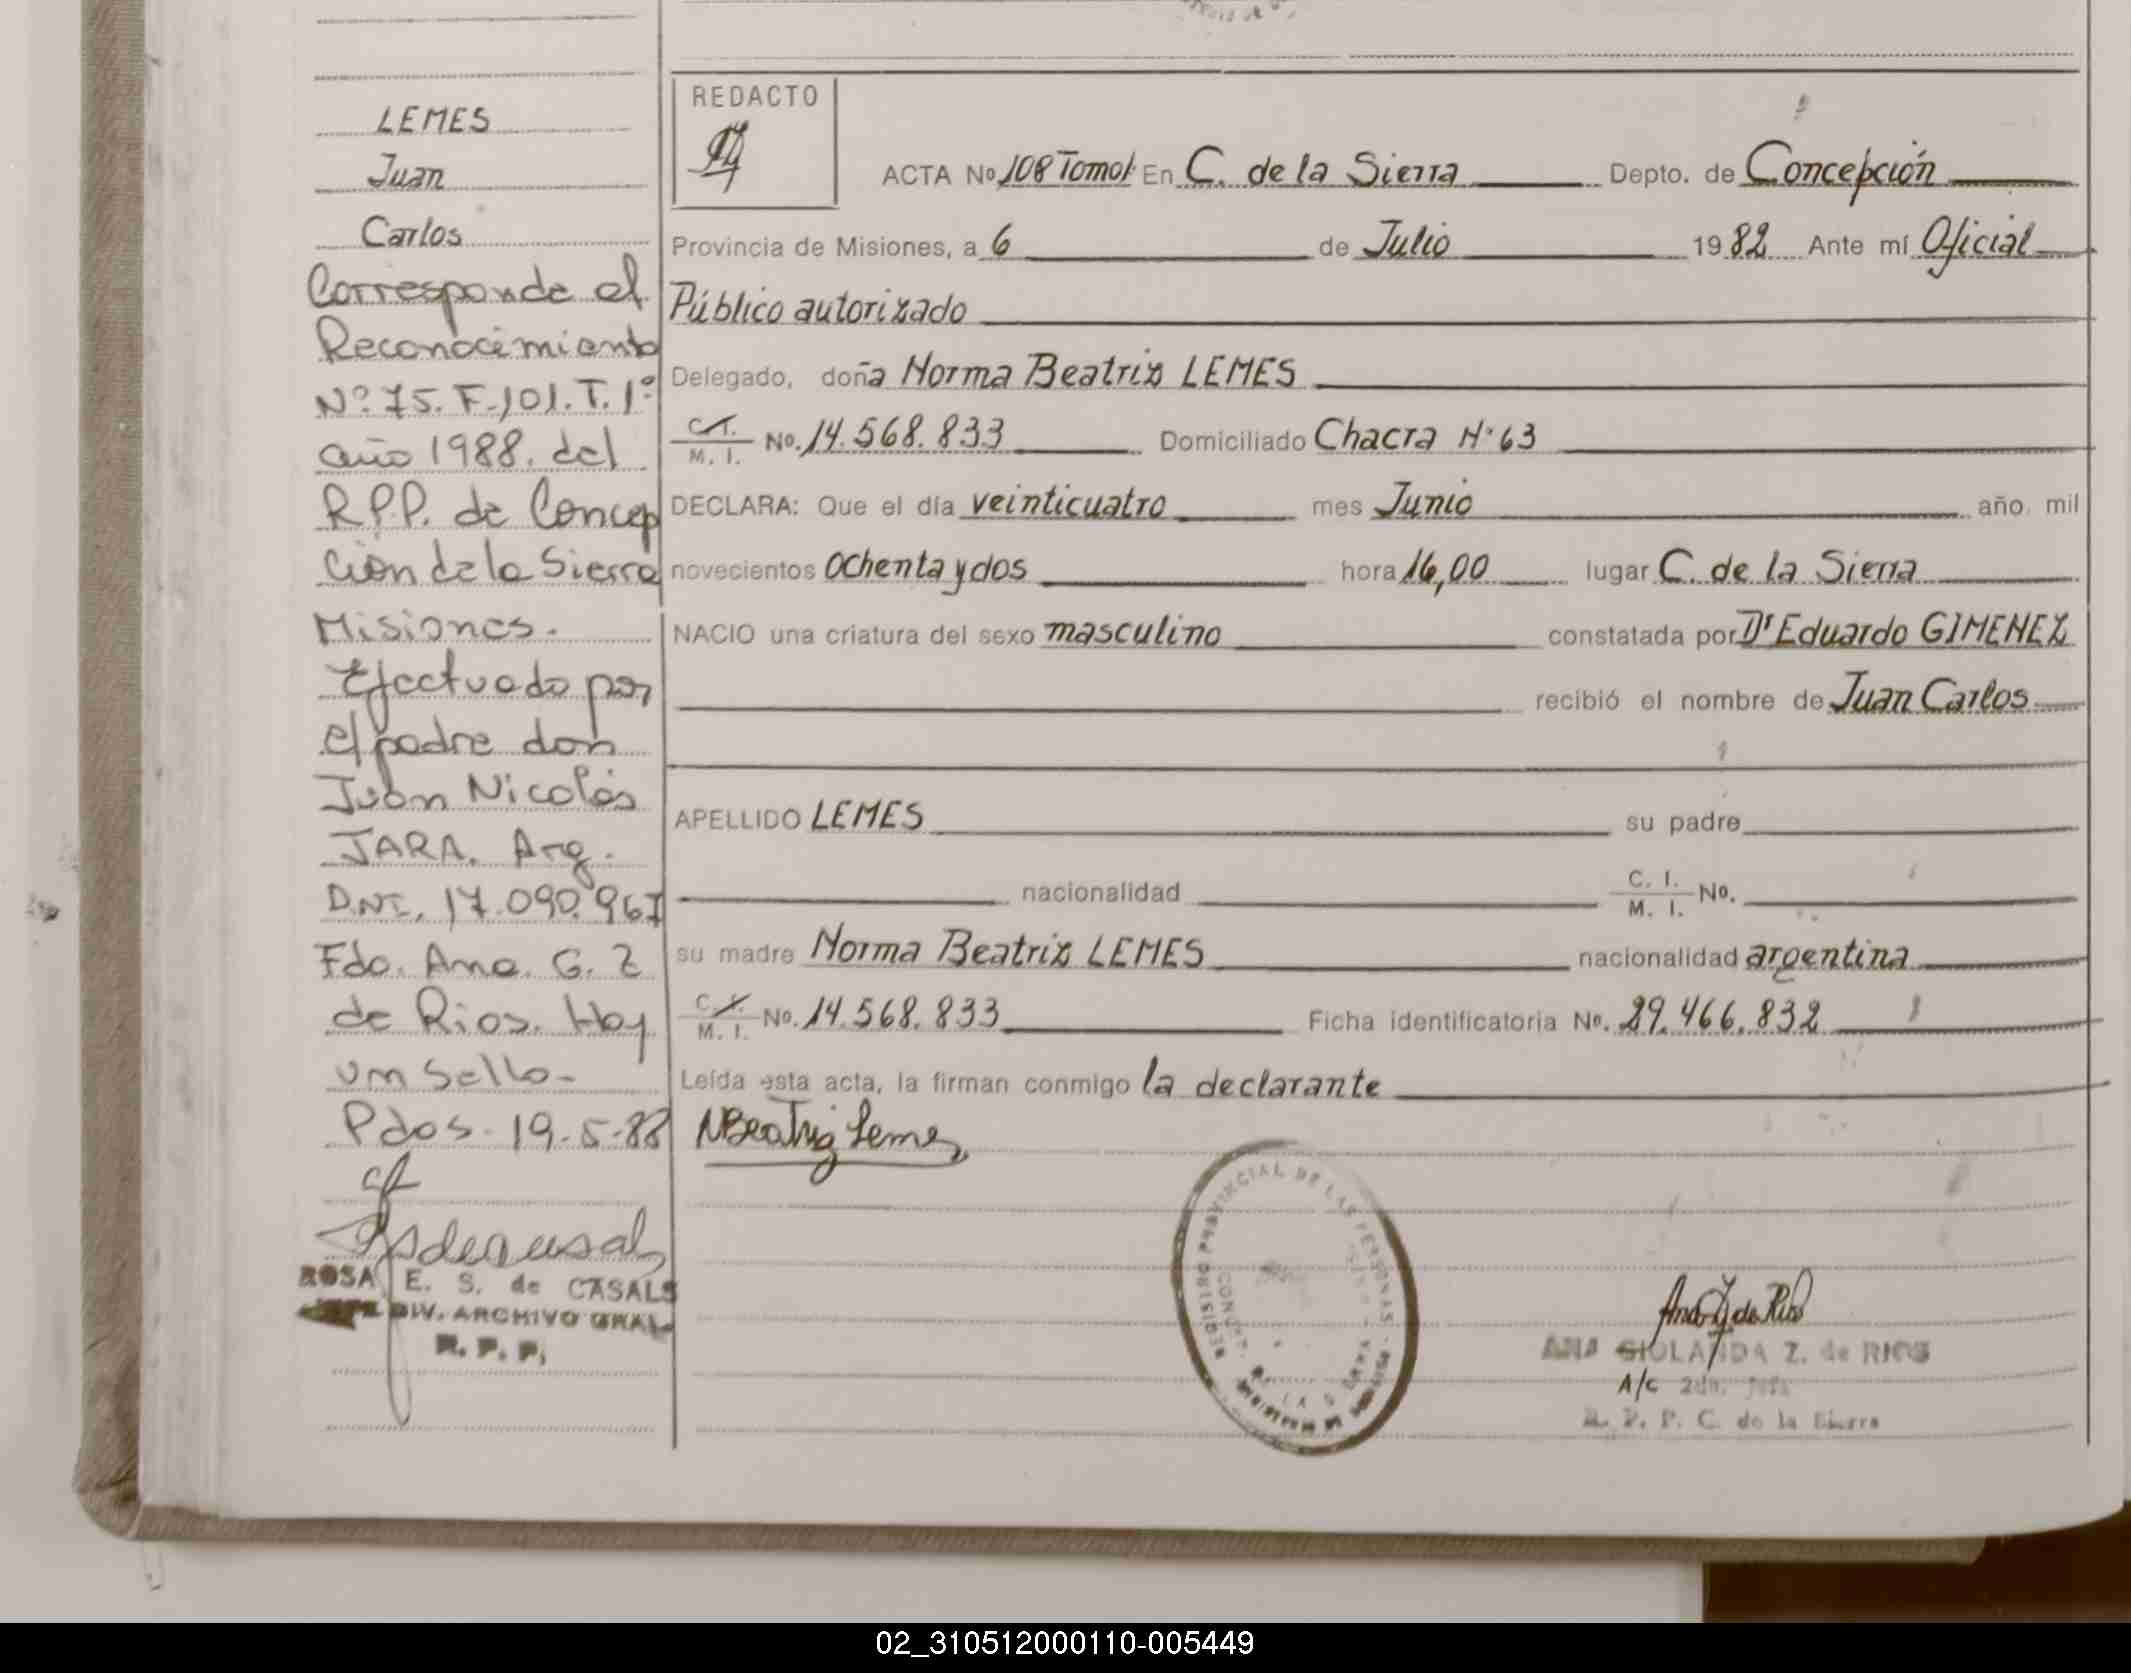 LEMES
Juan
Carlos
Corresponde el
Reconocimiento
Nº 75. F. 101. T. 1º
año 1988. del
R.P.P. de Concep
ción de la Sierra
Misiones.
Efectuado por
el padre don
Juan Nicolás
JARA. Arg.
D.N.I. 17.090.967
Fdo. Ana. G. Z
de Rios. Hay
un Sello-
Pdos. 19-5-88
ROSA E. S. de CASALS
DIV. ARCHIVO GRAL
R. P. P.
REDACTO
ACTA Nº 108 Tomo I En C. de la Sierra Depto. de Concepción
Provincia de Misiones, a 6 de Julio 1982 Ante mí Oficial
Público autorizado
Delegado, doña Norma Beatriz LEMES
C. I. / M. I. No. 14.568.833 Domiciliado Chacra Nº 63
DECLARA: Que el día veinticuatro mes Junio año mil
novecientos ochenta y dos hora 16,00 lugar C. de la Sierra
NACIO una criatura del sexo masculino constatada por Dr Eduardo GIMENEZ
recibió el nombre de Juan Carlos
APELLIDO LEMES su padre
nacionalidad C. I. / M. I. No.
su madre Norma Beatriz LEMES nacionalidad argentina
C. I. / M. I. No. 14.568.833 Ficha identificatoria No. 29.466.832
Leída esta acta, la firman conmigo la declarante
NBeatriz Lemes
REGISTRO PROVINCIAL DE LAS PERSONAS
Ana G de Rios
ANA GIOLANDA Z. de RIOS
A/c 2da. Jefa
R. P. P. C. de la Sierra
02_310512000110-005449